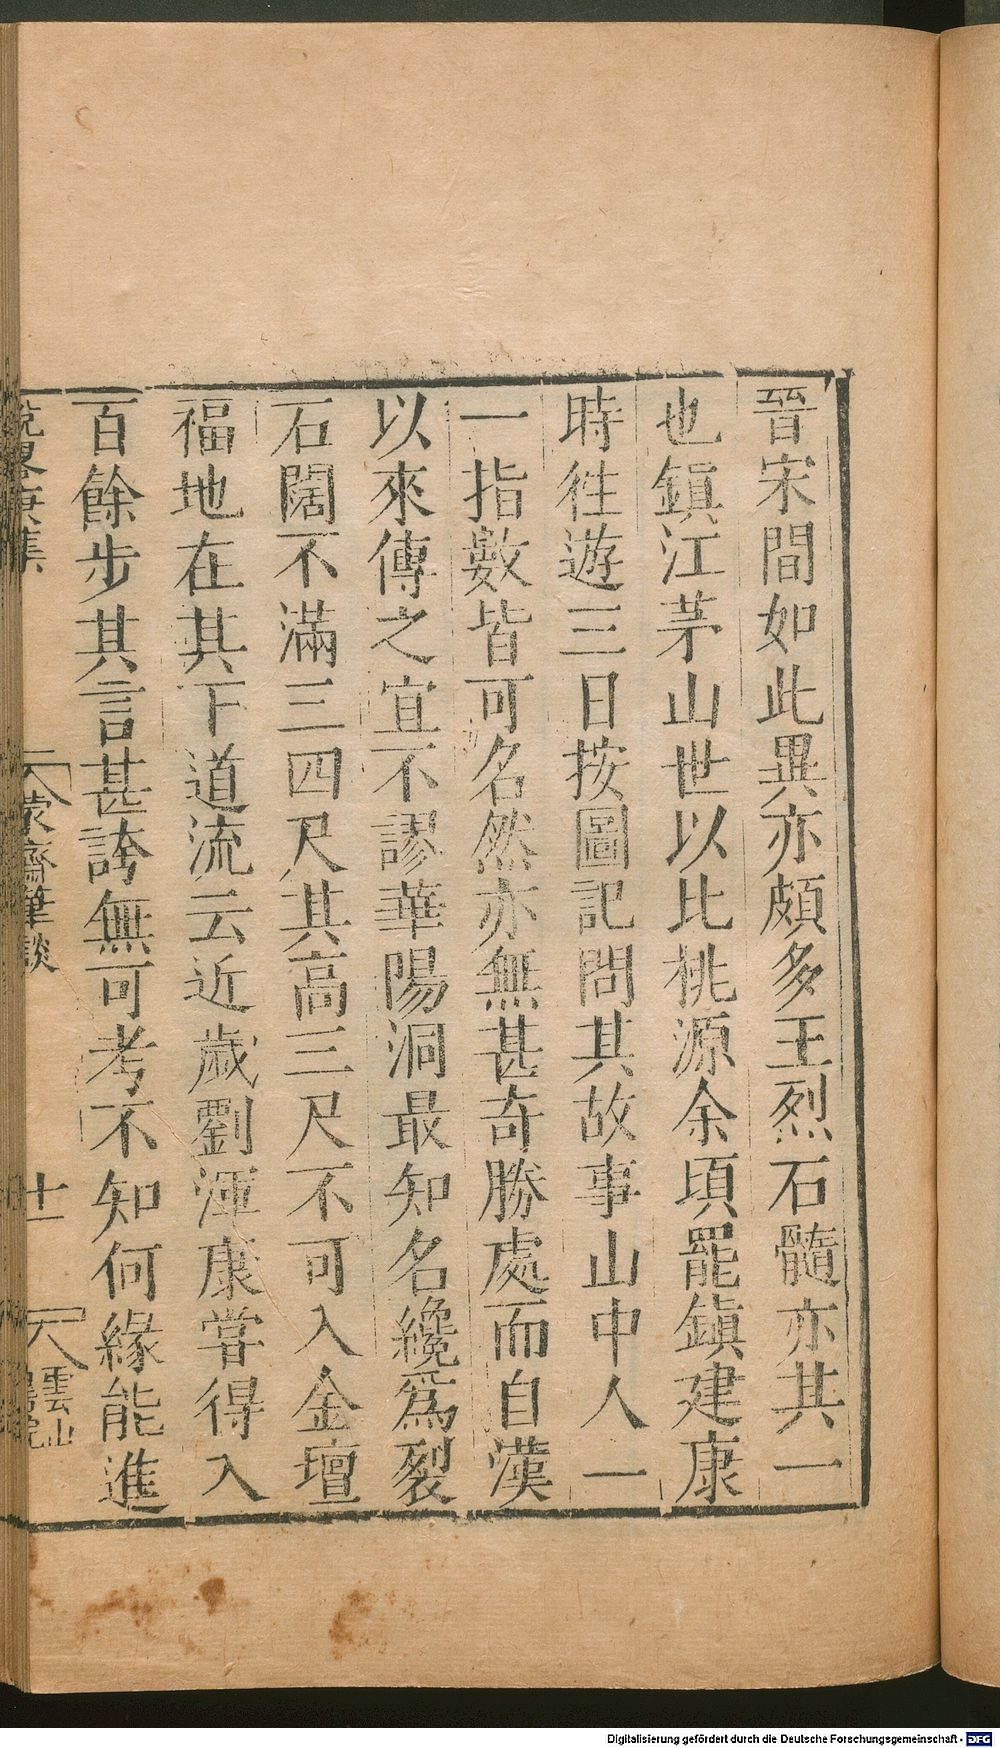 晉宋間如此異亦頗多王烈石髓亦其一
也鎮江茅山世以比桃源余頃罷鎮建康
時徃遊三日按圖記問其故事山中人一
一指數皆可名然亦無甚奇勝處而自漢
以來傳之宜不謬華陽洞最知名纔爲裂
石闊不滿三四尺其高三尺不可入金壇
福地在其下道流云近歲劉渾康嘗得入
百餘步其言甚誇無可考不知何緣能進
蒙齋筆談
十一
雲山
Digitalisierung gefördert durch die Deutsche Forschungsgemeinschaft - DFG